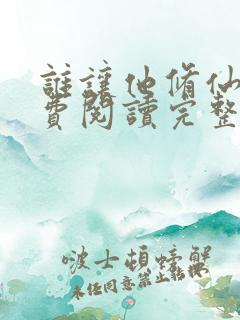 誰讓他脩仙
費閱讀完整
啵士頓螃蟹
未經同意禁止轉携